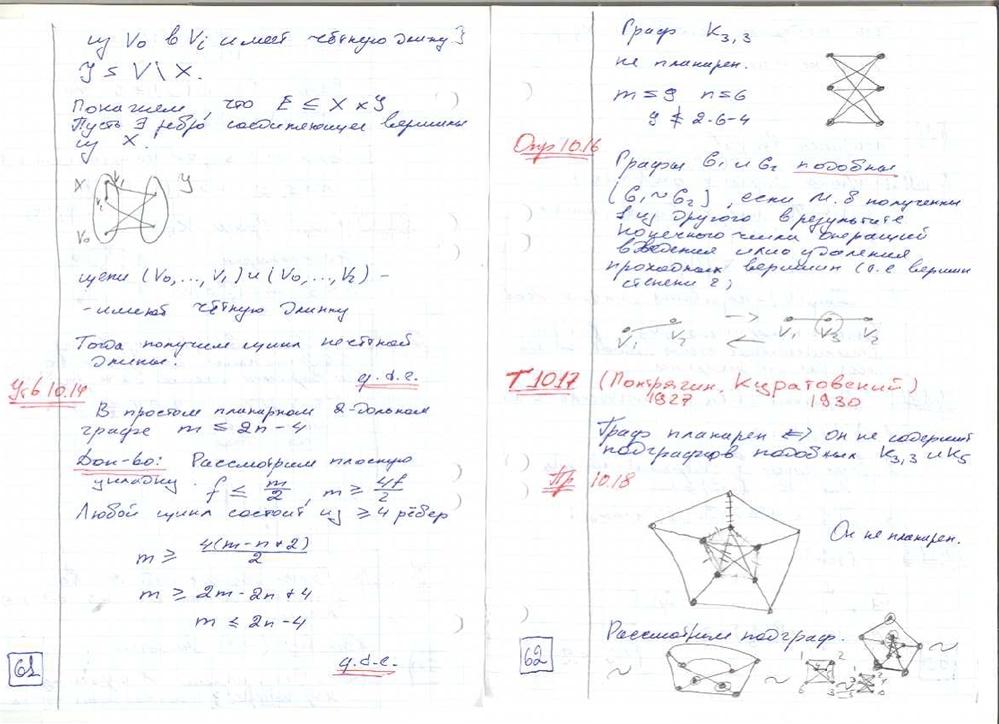 из V₀ в Vᵢ имеет чётную длину}
Y = V \ X.
Покажем, что E ⊆ X × Y
Пусть ∃ ребро соединяющее вершины
из X.
X V₁ Y
V₂
V₀
цепи (V₀, ..., V₁) и (V₀, ..., V₂) -
- имеют чётную длинну
Тогда получим цикл нечётной
длины.
q.d.e.
Утв 10.14
В простом планарном 2-дольном
графе m ≤ 2n - 4
Док-во: Рассмотрим плоскую
укладку. f ≤ m/2, m ≥ 4f/2
Любой цикл состоит из ≥ 4 рёбер
m ≥ 4(m-n+2)/2
m ≥ 2m - 2n + 4
m ≤ 2n - 4
q.d.e.
61
Граф K₃,₃
не планарен.
m = 9 n = 6
9 ≰ 2·6-4
Опр 10.16
Графы G₁ и G₂ подобны
[G₁ ~ G₂], если м. б полученны
1 из другого в результате
конечного числа операций
введения или удаления
проходных вершин (т.е вершин
степени 2)
V₁ V₂ → ← V₁ V₃ V₂
Т 10.17 (Понтрягин, Куратовский)
1927 1930
Граф планарен ⇔ он не содержит
подграфов подобных K₃,₃ и K₅
Пр 10.18
Он не планарен.
Рассмотрим подграф.
~ ~ 1 2 ~ ~
62